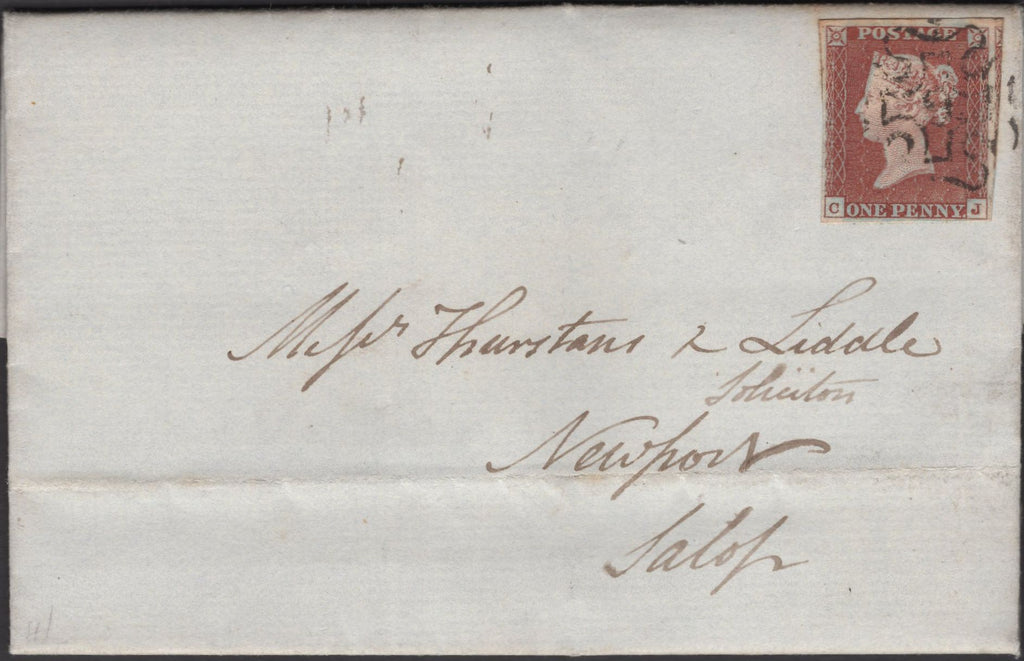 POSTAGE
C ONE PENNY J
Messrs Thurstans & Liddle
Solicitors
Newport
Salop